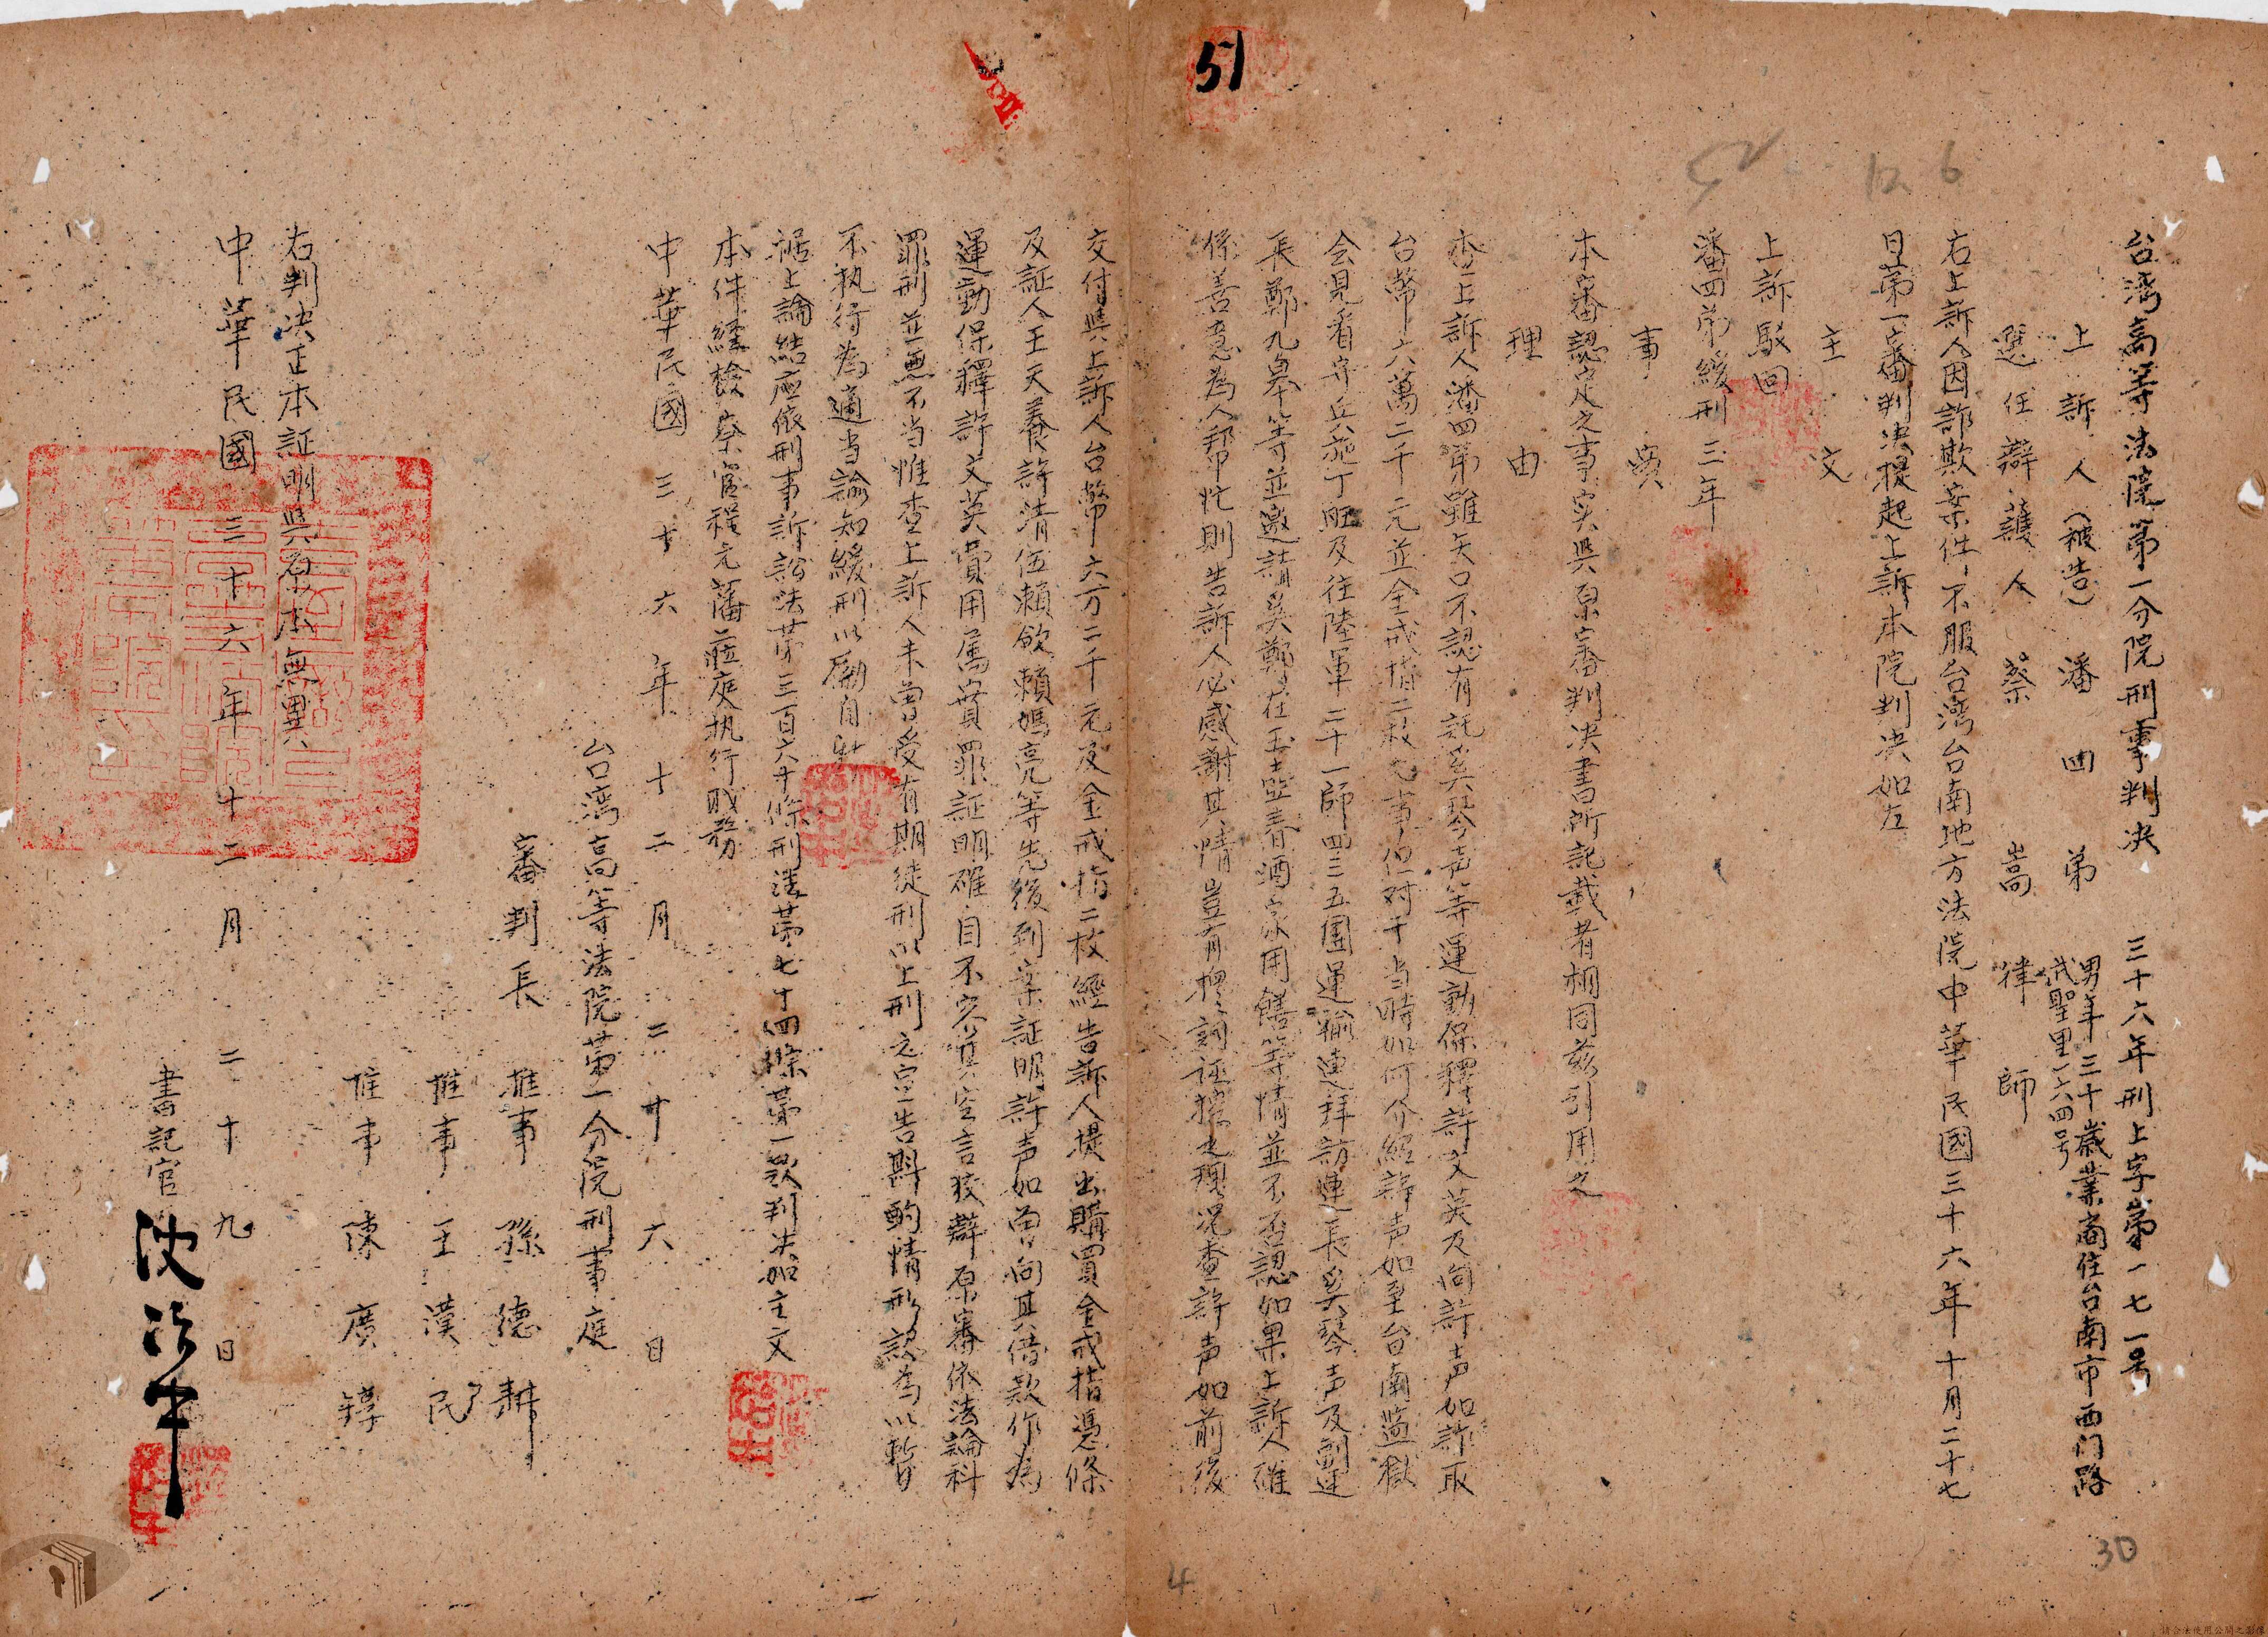 台湾高等法院第一分院刑事判决 三十六年刑上字第一七一号
上訴人（被告）潘四弟 男年三十歳業商住台南市西门路
武聖里一六四号
選任辯護人 蔡嵩律師
右上訴人因詐欺案件不服台湾台南地方法院中華民國三十六年十月二十七
日第一審判决提起上訴本院判决如左
主文
上訴駁回
潘四弟緩刑三年
事實
本審認定之事实與原審判决書所記載者相同茲引用之
理由
查上訴人潘四弟雖矢口不認有託奚琴声等運動保釋許文英及向許声如詐取
台幣六萬二千元並金戒指二枚之事但对于当時如何介紹許声如至台南監獄
会見看守兵施丁旺及往陸軍二十一師四三五團運輸連拜訪連長奚琴声及副連
長鄭九皋等並邀請奚鄭在玉春酒家用饍等情並不否認如果上訴人確
係善意為人帮忙則告訴人必感謝其情豈有捏詞誣攀之理况查許声如前後
交付與上訴人台幣六万二千元及金戒指二枚經告訴人提出購買金戒指憑條
及証人王天養許清伍賴欽賴媽亮等先後到案証明許声如曽向其借款作為
運動保釋許文英費用属實罪証明確自不容其空言狡辯原審依法論科
罪刑並無不当惟查上訴人未曽受有期徒刑以上刑之宣告斟酌情形認為以暫
不执行為適当諭知緩刑以勵自新
据上論結应依刑事訴訟法第三百六十條刑法第七十四條第一款判决如主文
本件經檢察官程元藩蒞庭执行职務
中華民國三十六年十二月二十六日
台湾高等法院第一分院刑事庭
審判長 推事 孫德耕
推事 王漢民
推事 陳廣錞
右判决正本証明與原本無異
中華民國三十六年十二月二十九日
書記官 沈治中
51
52
12.6
30
4